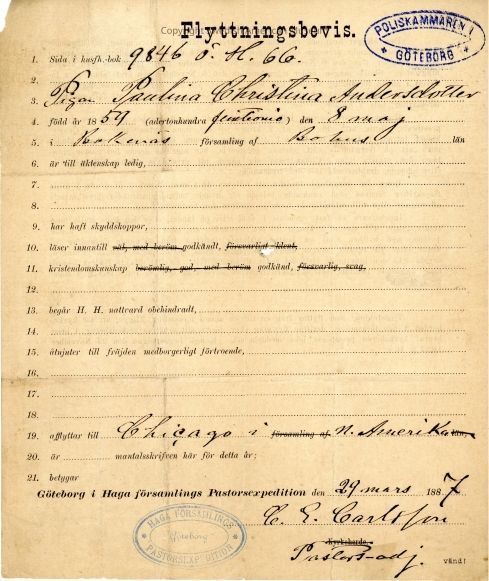 Flyttningsbevis.
POLISKAMMAREN I GÖTEBORG
1. Sida i husfh.-bok 9846 o. H. 66.
2.
3. Pigan Paulina Christina Andersdotter
4. född år 1859 (adertonhundra femtionio) den 8 maj
5. i Bokenäs församling af Bohus län
6. är till äktenskap ledig,
7.
8.
9. har haft skyddskoppor,
10. läser innantill väl, med beröm godkändt, försvarligt
11. kristendomskunskap berömlig, god, med beröm godkänd, försvarlig, svag,
12.
13. begår H. H. nattvard obehindradt,
14.
15. åtnjuter till fräjden medborgerligt förtroende,
16.
17.
18.
19. afflyttar till Chicago i församling af N. Amerika
20. är mantalsskrifven här för detta år;
21. betygar
Göteborg i Haga församlings Pastorsexpedition den 29 mars 1887
C. E. Carlsson
Kyrkoherde.
Pastors-adj.
HAGA FÖRSAMLINGS PASTORSEXPEDITION
Göteborg
vänd!